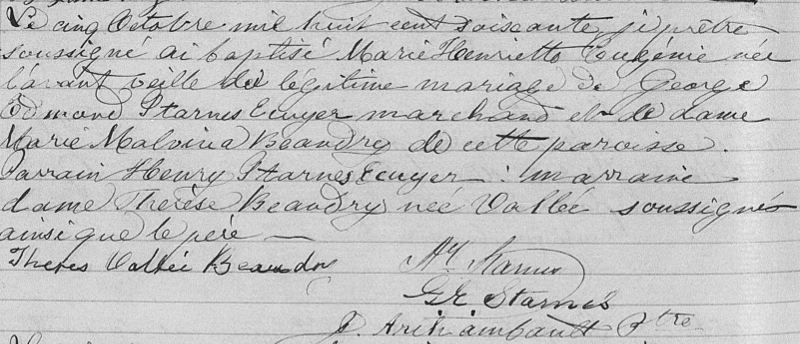 Le cinq Octobre mil huit cent soixante, je prêtre
soussigné ai baptisé Marie Henriette Eugénie née
l'avant veille du légitime mariage de George
Edmond Starnes Ecuyer marchand et de dame
Marie Malvina Beaudry de cette paroisse.
Parrain Henry Starnes Ecuyer : marraine
dame Thérèse Beaudry née Vallée soussignés
ainsi que le père —
Theres Vallée Beaudry
Hy Starnes
G E Starnes
J. Archambault Ptre